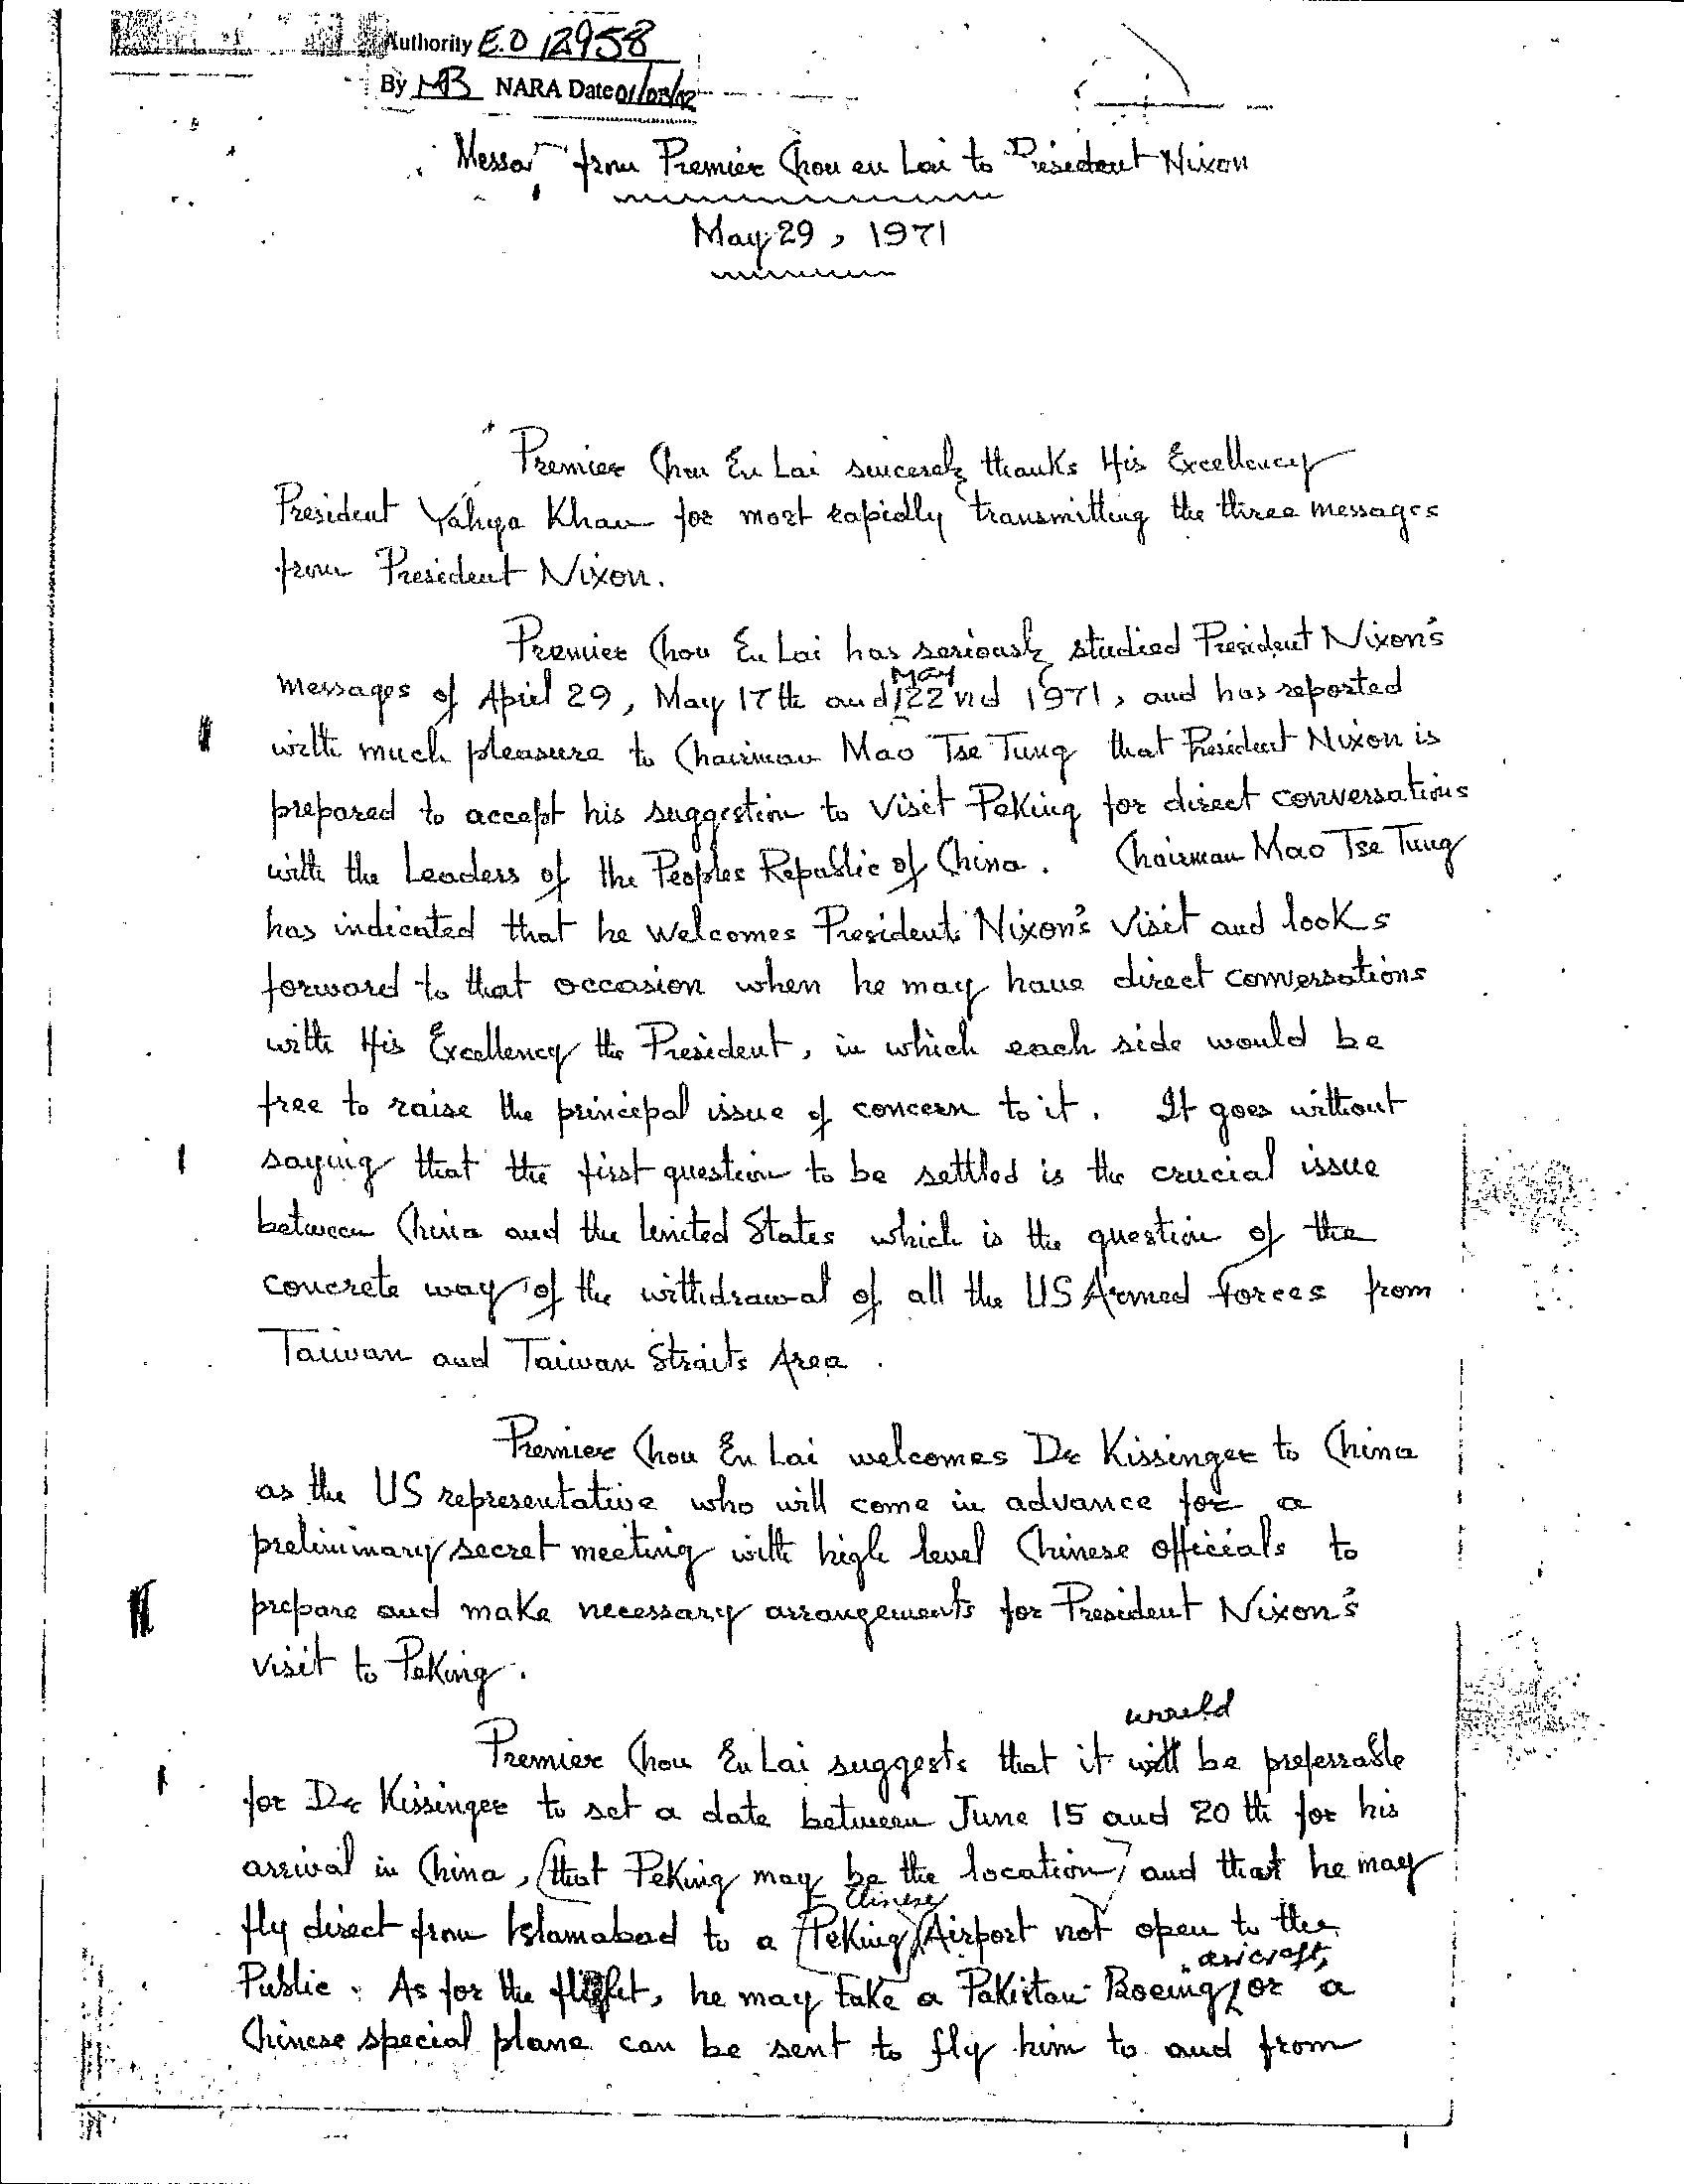 Authority E.O 12958
By MB NARA Date 01/03/02
from Premier Chou en Lai to President Nixon
May 29, 1971
Premier Chou En Lai sincerely thanks His Excellency
President Yahya Khan for most rapidly transmitting the three messages
from President Nixon.
Premier Chou En Lai has seriously studied President Nixon's
May
messages of April 29, May 17th and 22nd 1971, and has reported
with much pleasure to Chairman Mao Tse Tung that President Nixon is
prepared to accept his suggestion to visit Peking for direct conversations
with the Leaders of the Peoples Republic of China. Chairman Mao Tse Tung
has indicated that he welcomes President Nixon's visit and looks
forward to that occasion when he may have direct conversations
with His Excellency the President, in which each side would be
free to raise the principal issue of concern to it. It goes without
saying that the first question to be settled is the crucial issue
between China and the United States which is the question of the
concrete way of the withdrawal of all the US Armed Forces from
Taiwan and Taiwan Straits Area.
Premier Chou En Lai welcomes Dr Kissinger to China
as the US representative who will come in advance for a
preliminary secret meeting with high level Chinese officials to
prepare and make necessary arrangements for President Nixon's
visit to Peking.
would
Premier Chou En Lai suggests that it will be preferrable
for Dr Kissinger to set a date between June 15 and 20th for his
arrival in China, (that Peking may be the location) and that he may
Chinese
fly direct from Islamabad to a (Peking) Airport not open to the
aricraft,
Public. As for the flight, he may take a Pakistan Boeing or a
Chinese special plane can be sent to fly him to and from